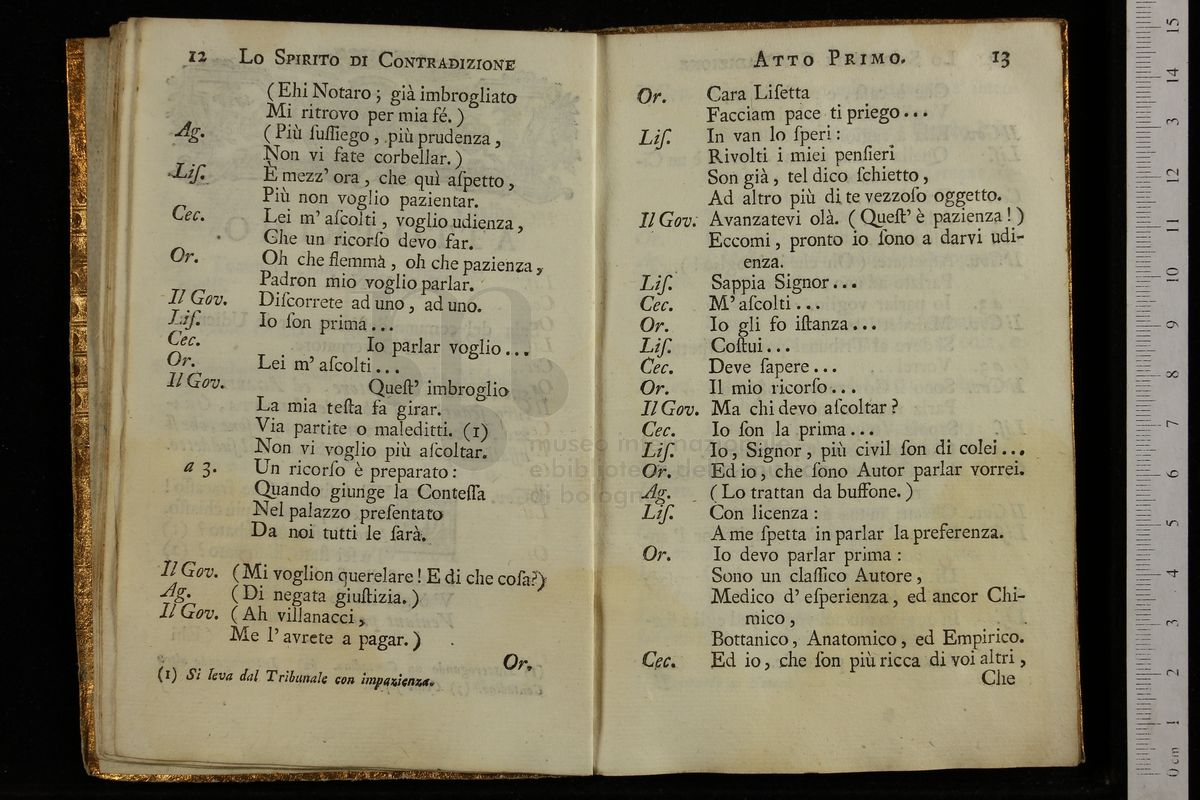 12 Lo Spirito di Contradizione
(Ehi Notaro; già imbrogliato
Mi ritrovo per mia fé.)
Ag. (Più ſuſſiego, più prudenza,
Non vi fate corbellar.)
Liſ. È mezz' ora, che quì aſpetto,
Più non voglio pazientar.
Cec. Lei m' aſcolti, voglio udienza,
Che un ricorſo devo far.
Or. Oh che flemmà, oh che pazienza,
Padron mio voglio parlar.
Il Gov. Diſcorrete ad uno, ad uno.
Liſ. Io ſon prima...
Cec. Io parlar voglio...
Or. Lei m' aſcolti...
Il Gov. Queſt' imbroglio
La mia teſta fa girar.
Via partite o maleditti. (1)
Non vi voglio più aſcoltar.
a 3. Un ricorſo è preparato:
Quando giunge la Conteſſa
Nel palazzo preſentato
Da noi tutti le ſarà.
Il Gov. (Mi voglion querelare! E di che coſa?)
Ag. (Di negata giuſtizia.)
Il Gov. (Ah villanacci,
Me l' avrete a pagar.)
Or.
(1) Si leva dal Tribunale con impazienza.
Atto Primo. 13
Or. Cara Liſetta
Facciam pace ti priego...
Liſ. In van lo ſperi:
Rivolti i miei penſieri
Son già, tel dico ſchietto,
Ad altro più di te vezzoſo oggetto.
Il Gov. Avanzatevi olà. (Queſt' è pazienza!)
Eccomi, pronto io ſono a darvi udi-
enza.
Liſ. Sappia Signor...
Cec. M' aſcolti...
Or. Io gli fo iſtanza...
Liſ. Coſtui...
Cec. Deve ſapere...
Or. Il mio ricorſo...
Il Gov. Ma chi devo aſcoltar?
Cec. Io ſon la prima...
Liſ. Io, Signor, più civil ſon di colei...
Or. Ed io, che ſono Autor parlar vorrei.
Ag. (Lo trattan da buffone.)
Liſ. Con licenza:
A me ſpetta in parlar la preferenza.
Or. Io devo parlar prima:
Sono un claſſico Autore,
Medico d' eſperienza, ed ancor Chi-
mico,
Bottanico, Anatomico, ed Empirico.
Cec. Ed io, che ſon più ricca di voi altri,
Che
museo internazionale
e biblioteca della musica
di bologna
0 cm 1 2 3 4 5 6 7 8 9 10 11 12 13 14 15